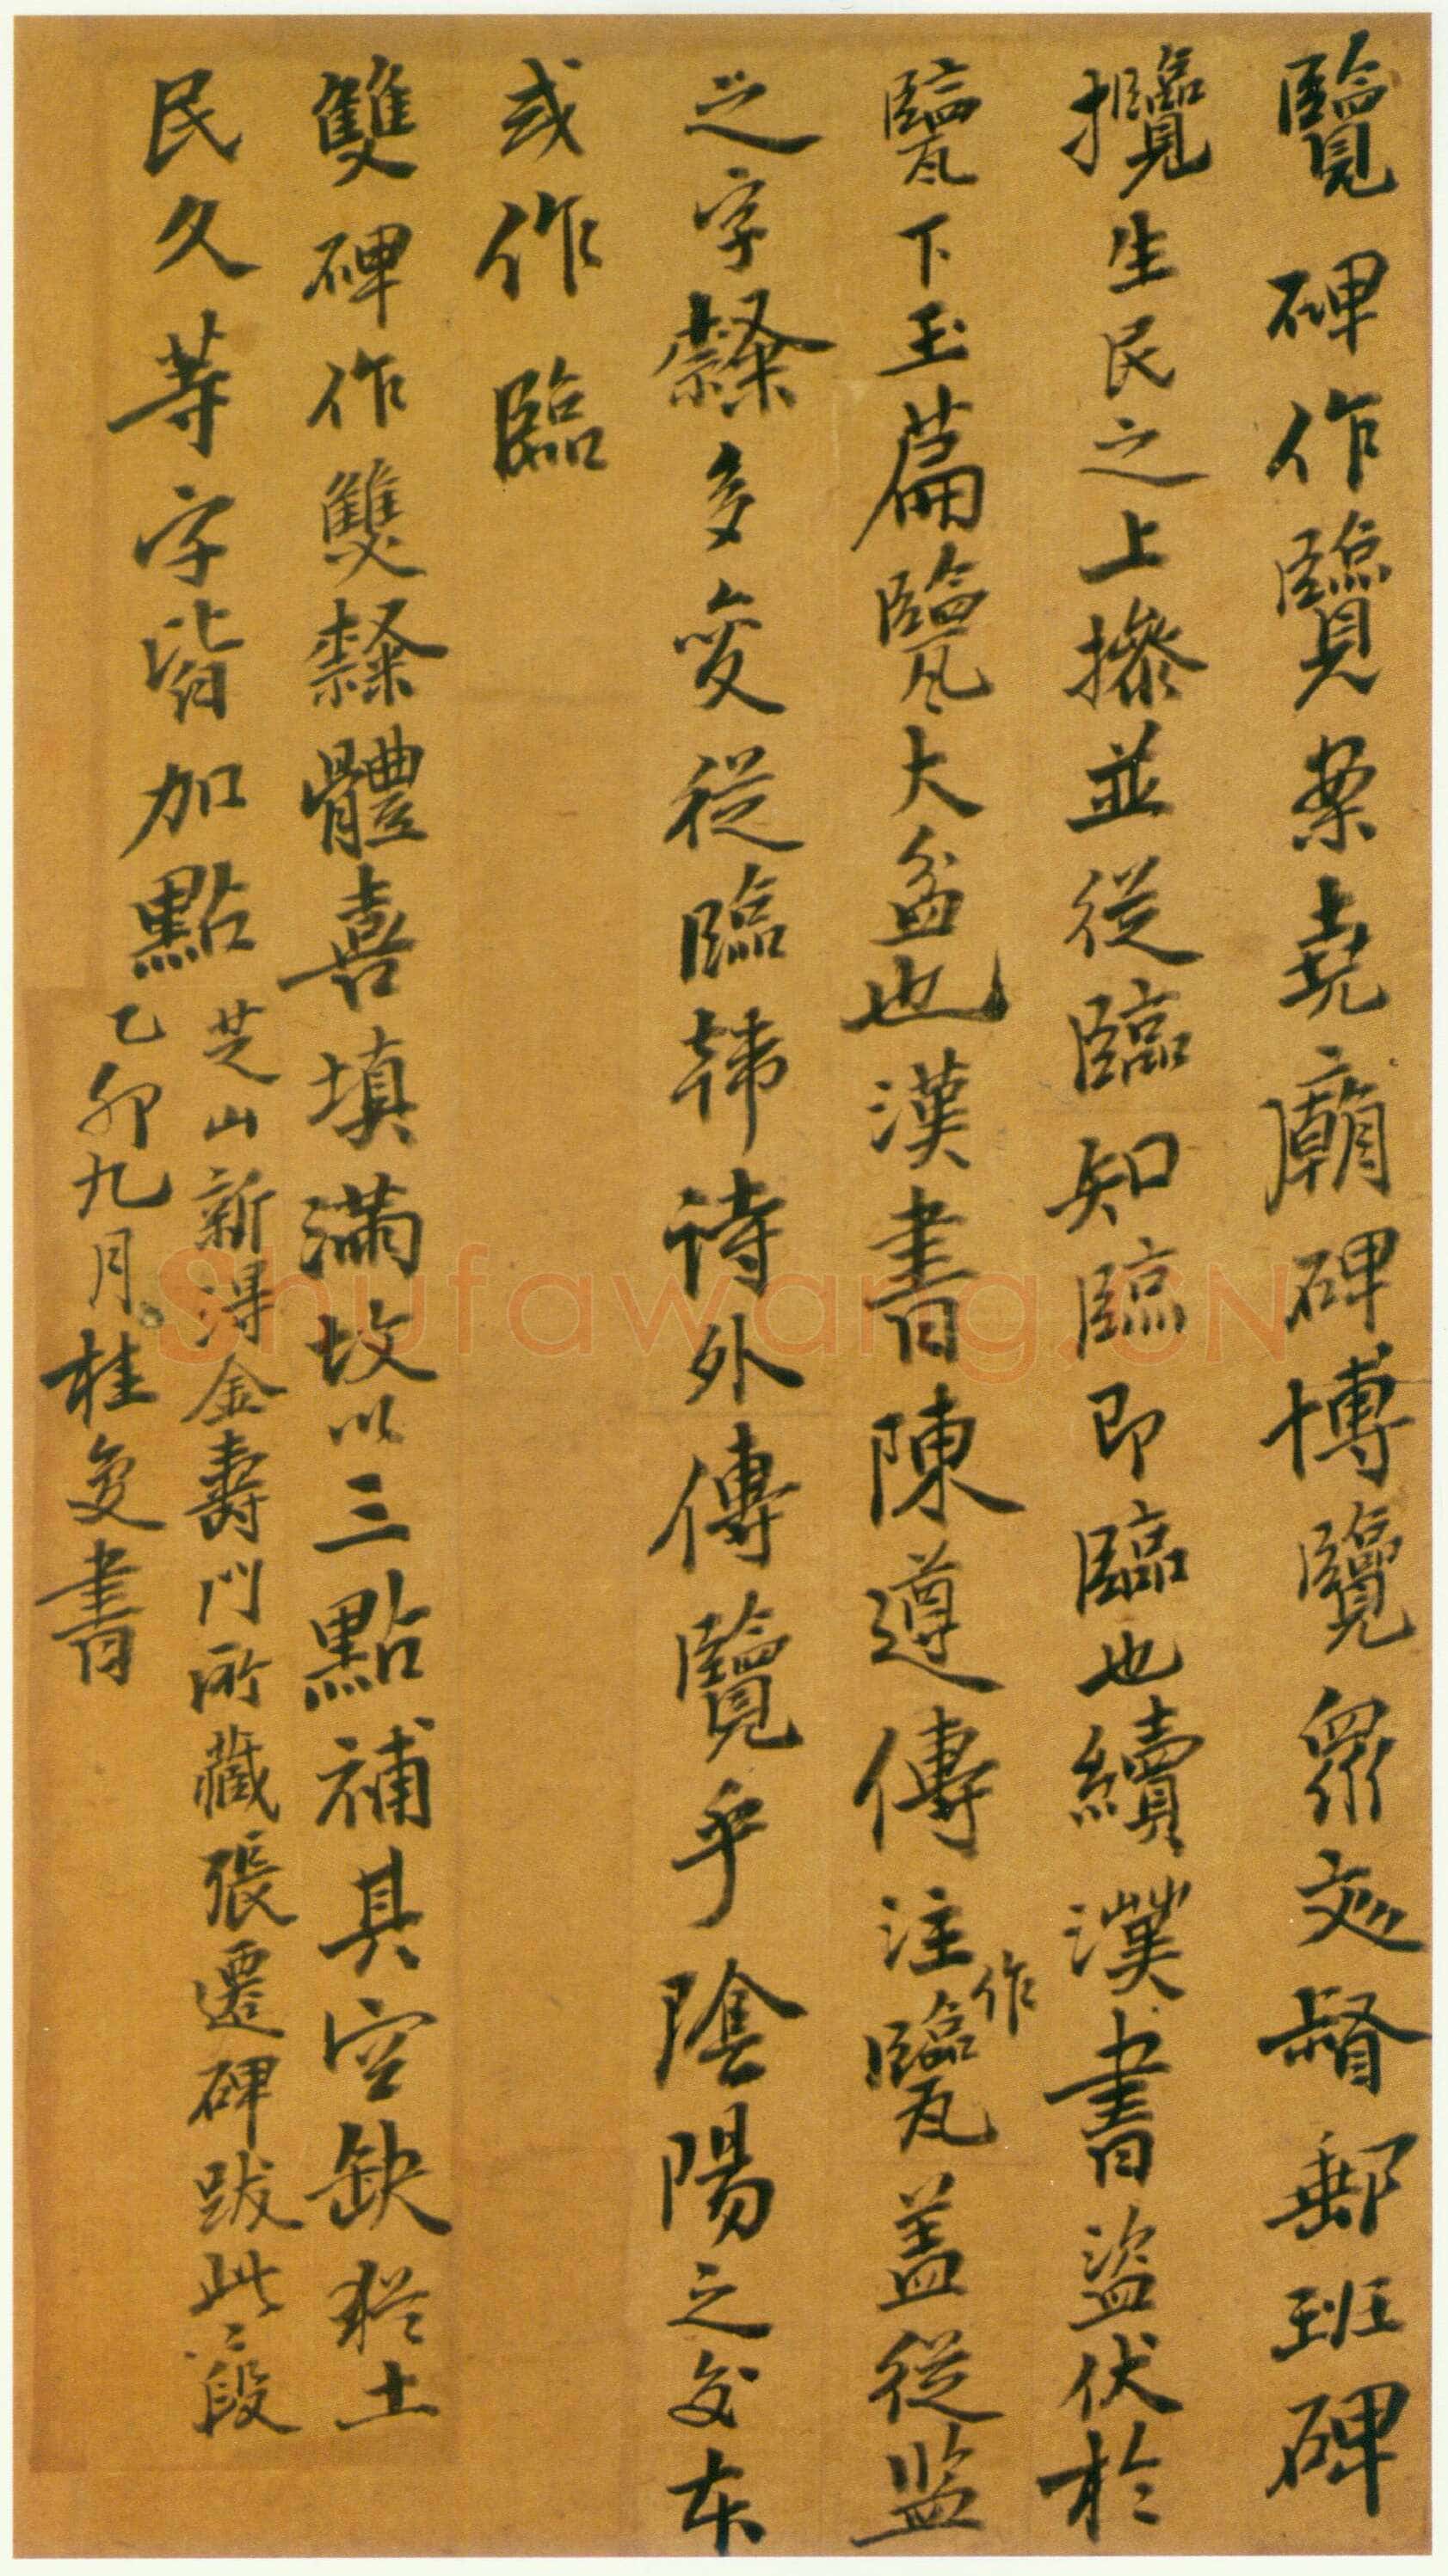 覽碑作覽案堯廟碑博覽眾文督郵班碑
攬生民之上摻並從臨知臨即臨也續漢書盜伏於
甖下玉篇甖大盆也漢書陳遵傳注作甖蓋從監
之字隸多變從臨韓詩外傳覽乎陰陽之交本
或作臨
雙碑作雙隸體喜填滿故以三點補其空缺猶土
民久等字皆加點
芝山新得金壽門所藏張遷碑跋此二段
乙卯九月桂復書
Shufawang.CN